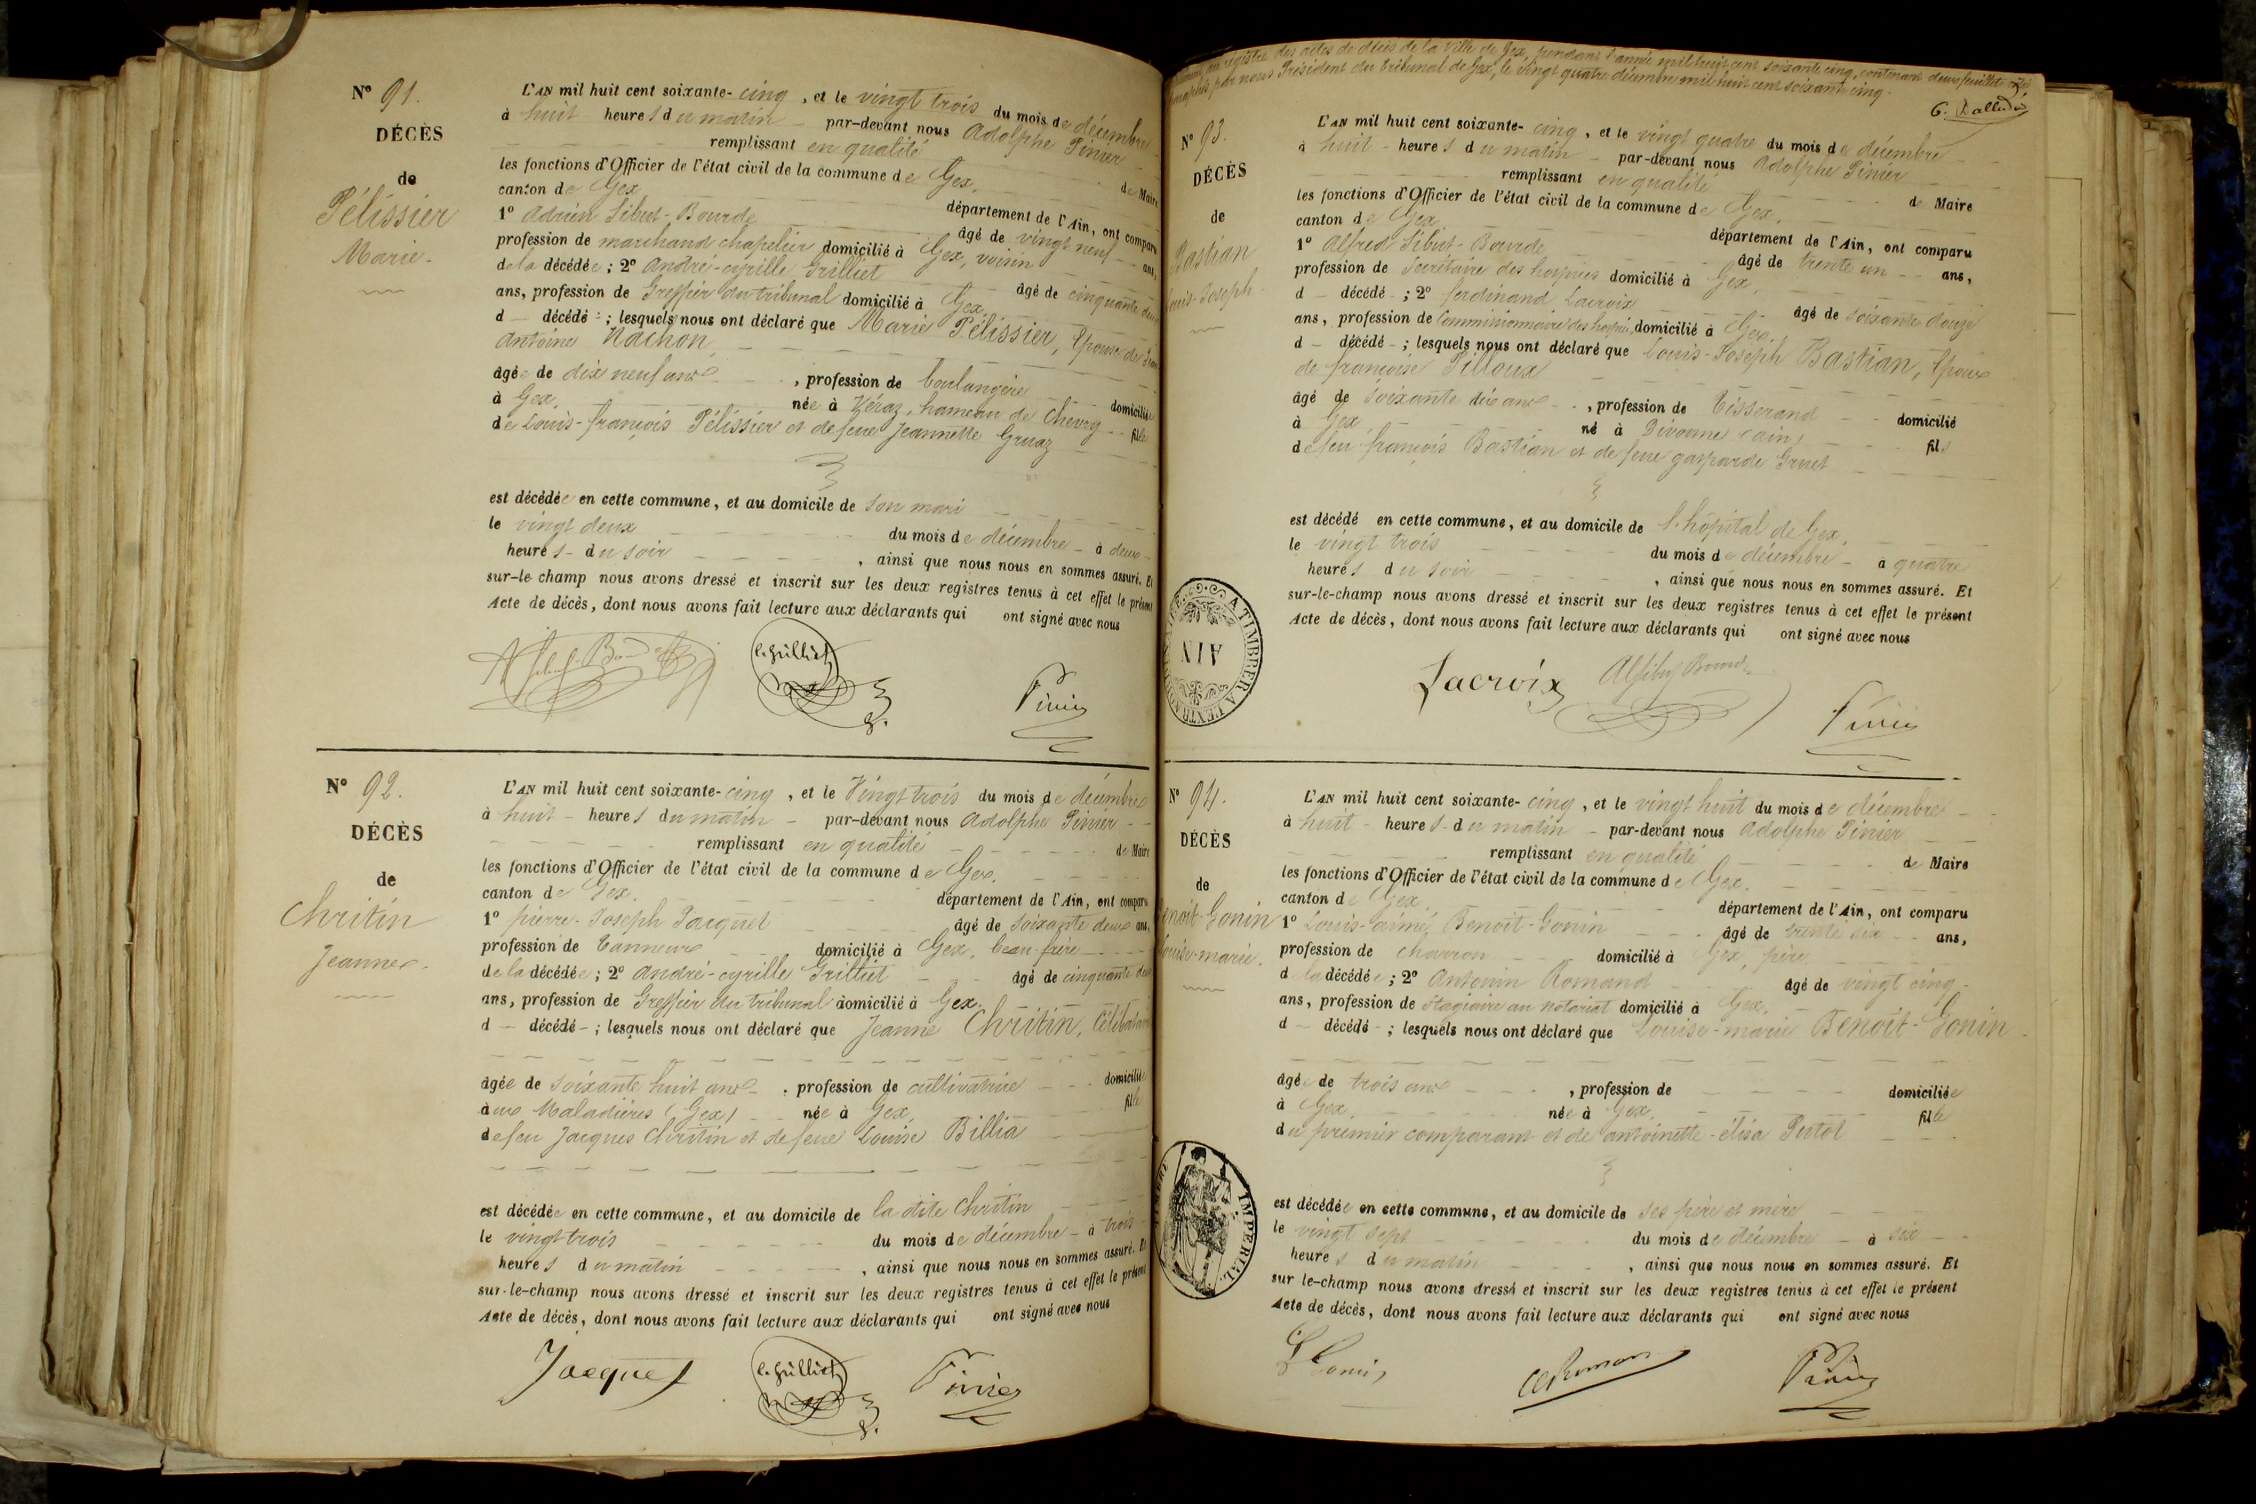 Nº 91.
DÉCÈS
de
Pélissier
Marie.
L'AN mil huit cent soixante-cinq, et le vingt trois du mois de décembre
à huit heures du matin par-devant nous Adolphe Pinier
remplissant en qualité de Maire
les fonctions d'Officier de l'état civil de la commune de Gex,
canton de Gex, département de l'Ain, ont comparu
1º Adrien Sibut-Bourde âgé de vingt neuf ans,
profession de marchand chapelier domicilié à Gex, voisin
de la décédée; 2º André-cyrille Grilliet âgé de cinquante deux
ans, profession de Greffier du tribunal domicilié à Gex,
d décédé; lesquels nous ont déclaré que Marie Pélissier, Epouse de
Antoine Nachon,
âgée de dix neuf ans, profession de boulangère domiciliée
à Gex, née à Véraz, hameau de Chevry fille
de Louis-françois Pélissier et de feue Jeannette Gruaz
est décédée en cette commune, et au domicile de son mari
le vingt deux du mois de décembre à deux
heures du soir, ainsi que nous nous en sommes assuré. Et
sur-le champ nous avons dressé et inscrit sur les deux registres tenus à cet effet le présent
Acte de décès, dont nous avons fait lecture aux déclarants qui ont signé avec nous
C. Grilliet
Pinier
Nº 92.
DÉCÈS
de
Chritin
Jeanne.
L'AN mil huit cent soixante-cinq, et le Vingt trois du mois de décembre
à huit heures du matin par-devant nous Adolphe Pinier
remplissant en qualité de Maire
les fonctions d'Officier de l'état civil de la commune de Gex,
canton de Gex, département de l'Ain, ont comparu
1º pierre-Joseph Jacquet âgé de soixante deux ans,
profession de Tanneur domicilié à Gex, beau-frère
de la décédée; 2º André-cyrille Grilliet âgé de cinquante deux
ans, profession de Greffier du tribunal domicilié à Gex,
d décédé; lesquels nous ont déclaré que Jeanne Chritin, Célibataire
âgée de soixante huit ans, profession de cultivatrice domiciliée
aux Maladières (Gex) née à Gex, fille
de feu Jacques Chritin et de feue Louise Billia
est décédée en cette commune, et au domicile de la dite Chritin
le vingt trois du mois de décembre à trois
heures du matin, ainsi que nous nous en sommes assuré. Et
sur-le-champ nous avons dressé et inscrit sur les deux registres tenus à cet effet le présent
Acte de décès, dont nous avons fait lecture aux déclarants qui ont signé avec nous
Jacquet
C. Grilliet
Pinier
registre des actes de décès de la Ville de Gex, pendant l'année mil huit cent soixante cinq, contenant deux feuillets
par nous Président du tribunal de Gex, le vingt quatre décembre mil huit cent soixante cinq.
Nº 93.
DÉCÈS
de
Bastian
Louis-Joseph.
L'AN mil huit cent soixante-cinq, et le vingt quatre du mois de décembre
à huit heures du matin par-devant nous Adolphe Pinier
remplissant en qualité de Maire
les fonctions d'Officier de l'état civil de la commune de Gex,
canton de Gex, département de l'Ain, ont comparu
1º Alfred Sibut-Bourde âgé de trente un ans,
profession de Secrétaire des hospices domicilié à Gex,
d décédé; 2º ferdinand Lacroix âgé de soixante douze
ans, profession de Commissionnaire des hospices domicilié à Gex,
d décédé; lesquels nous ont déclaré que Louis-Joseph Bastian, Epoux
de françoise Pilloux
âgé de soixante dix ans, profession de Tisserand domicilié
à Gex né à Divonne (ain) fils
de feu françois Bastian et de feue gasparde Gruet
est décédé en cette commune, et au domicile de l'hôpital de Gex,
le vingt trois du mois de décembre à quatre
heures du soir, ainsi que nous nous en sommes assuré. Et
sur-le-champ nous avons dressé et inscrit sur les deux registres tenus à cet effet le présent
Acte de décès, dont nous avons fait lecture aux déclarants qui ont signé avec nous
A TIMBRER A L'EXTRAORDINAIRE
AIN
Lacroix
Pinier
Nº 94.
DÉCÈS
de
Benoit-Gonin
Louise-marie.
L'AN mil huit cent soixante-cinq, et le vingt huit du mois de décembre
à huit heures du matin par-devant nous Adolphe Pinier
remplissant en qualité de Maire
les fonctions d'Officier de l'état civil de la commune de Gex,
canton de Gex, département de l'Ain, ont comparu
1º Louis-aimé Benoit-Gonin âgé de trente six ans,
profession de charron domicilié à Gex, père
de la décédée; 2º Antonin Romand âgé de vingt cinq
ans, profession de stagiaire au notariat domicilié à Gex,
d décédé; lesquels nous ont déclaré que Louise-marie Benoit-Gonin
âgée de trois ans, profession de domiciliée
à Gex, née à Gex, fille
du premier comparant et de antoinette-élisa Putol
est décédée en cette commune, et au domicile de ses père et mère
le vingt sept du mois de décembre à six
heures du matin, ainsi que nous nous en sommes assuré. Et
sur le-champ nous avons dressé et inscrit sur les deux registres tenus à cet effet le présent
Acte de décès, dont nous avons fait lecture aux déclarants qui ont signé avec nous
TIMBRE IMPÉRIAL.
Pinier